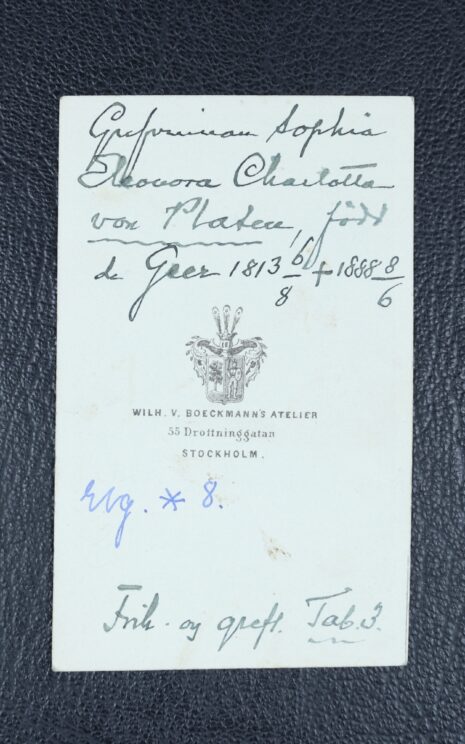 Grefvinnan Sophia
Eleonora Charlotta
von Platen, född
de Geer 1813 6/8 + 1888 8/6
WILH. V. BOECKMANN'S ATELIER
55 Drottninggatan
STOCKHOLM.
* 8.
Frih. og grefl. Tab. 3.